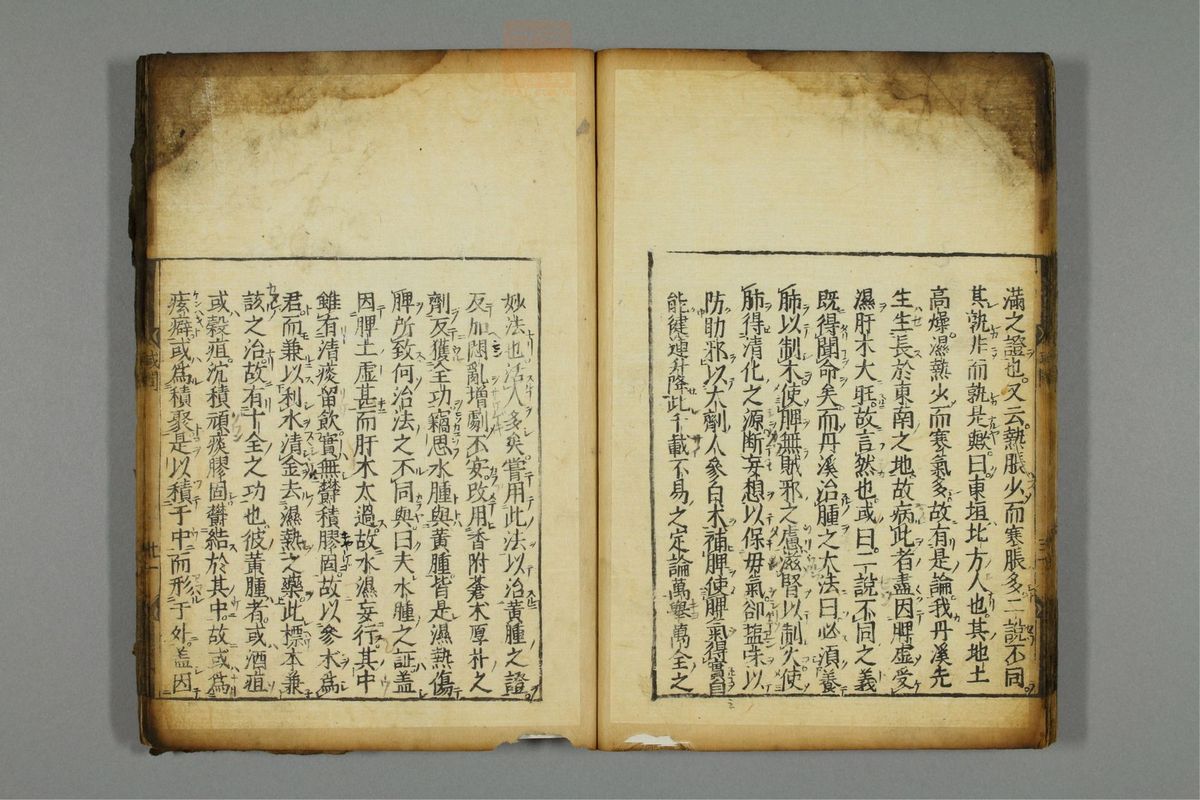 滿之證也又云熱脹少而寒脹多二說不同
其孰非而孰是歟曰東垣北方人也其地土
高燥濕熱少而寒氣多故有是論我丹溪先
生生長於東南之地故病此者盡因脾虛受
濕肝木大旺故言然也或曰二說不同之義
既得聞命矣而丹溪治腫之大法曰必須養
肺以制木使脾無賊邪之慮滋腎以制火使
肺得清化之源斷妄想以保母氣卻鹽味以
防助邪以大劑人參白朮補脾使脾氣得實自
能健運升降此千載不易之定論萬擧萬全之
妙法也活人多矣嘗用此法以治黃腫之證
反加悶亂增劇不安改用香附蒼朮厚朴之
劑反獲全功竊思水腫與黃腫皆是濕熱傷
脾所致何治法之不同與曰夫水腫之証蓋
因脾土虛甚而肝木太過故水濕妄行其中
雖有清痰留飲實無欝積膠固故以參朮為
君而兼以利水清金去濕熱之藥此標本兼
該之治故有十全之功也彼黃腫者或酒疸
或穀疸沉積頑痰膠固欝結於其中故或為
痃癖或為積聚是以積于中而形于外蓋因